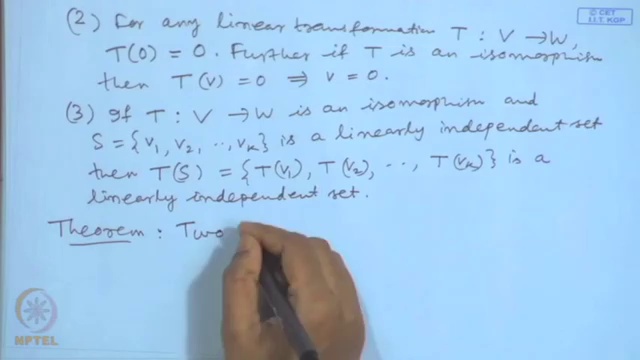 © CET
I.I.T. KGP
(2) For any linear transformation T : V → W,
T(0) = 0. Further if T is an isomorphism
then T(v) = 0 ⟹ v = 0.
(3) If T : V → W is an isomorphism and
S = {v₁, v₂, .., vₖ} is a linearly independent set
then T(S) = {T(v₁), T(v₂), .., T(vₖ)} is a
linearly independent set.
Theorem : Two
NPTEL